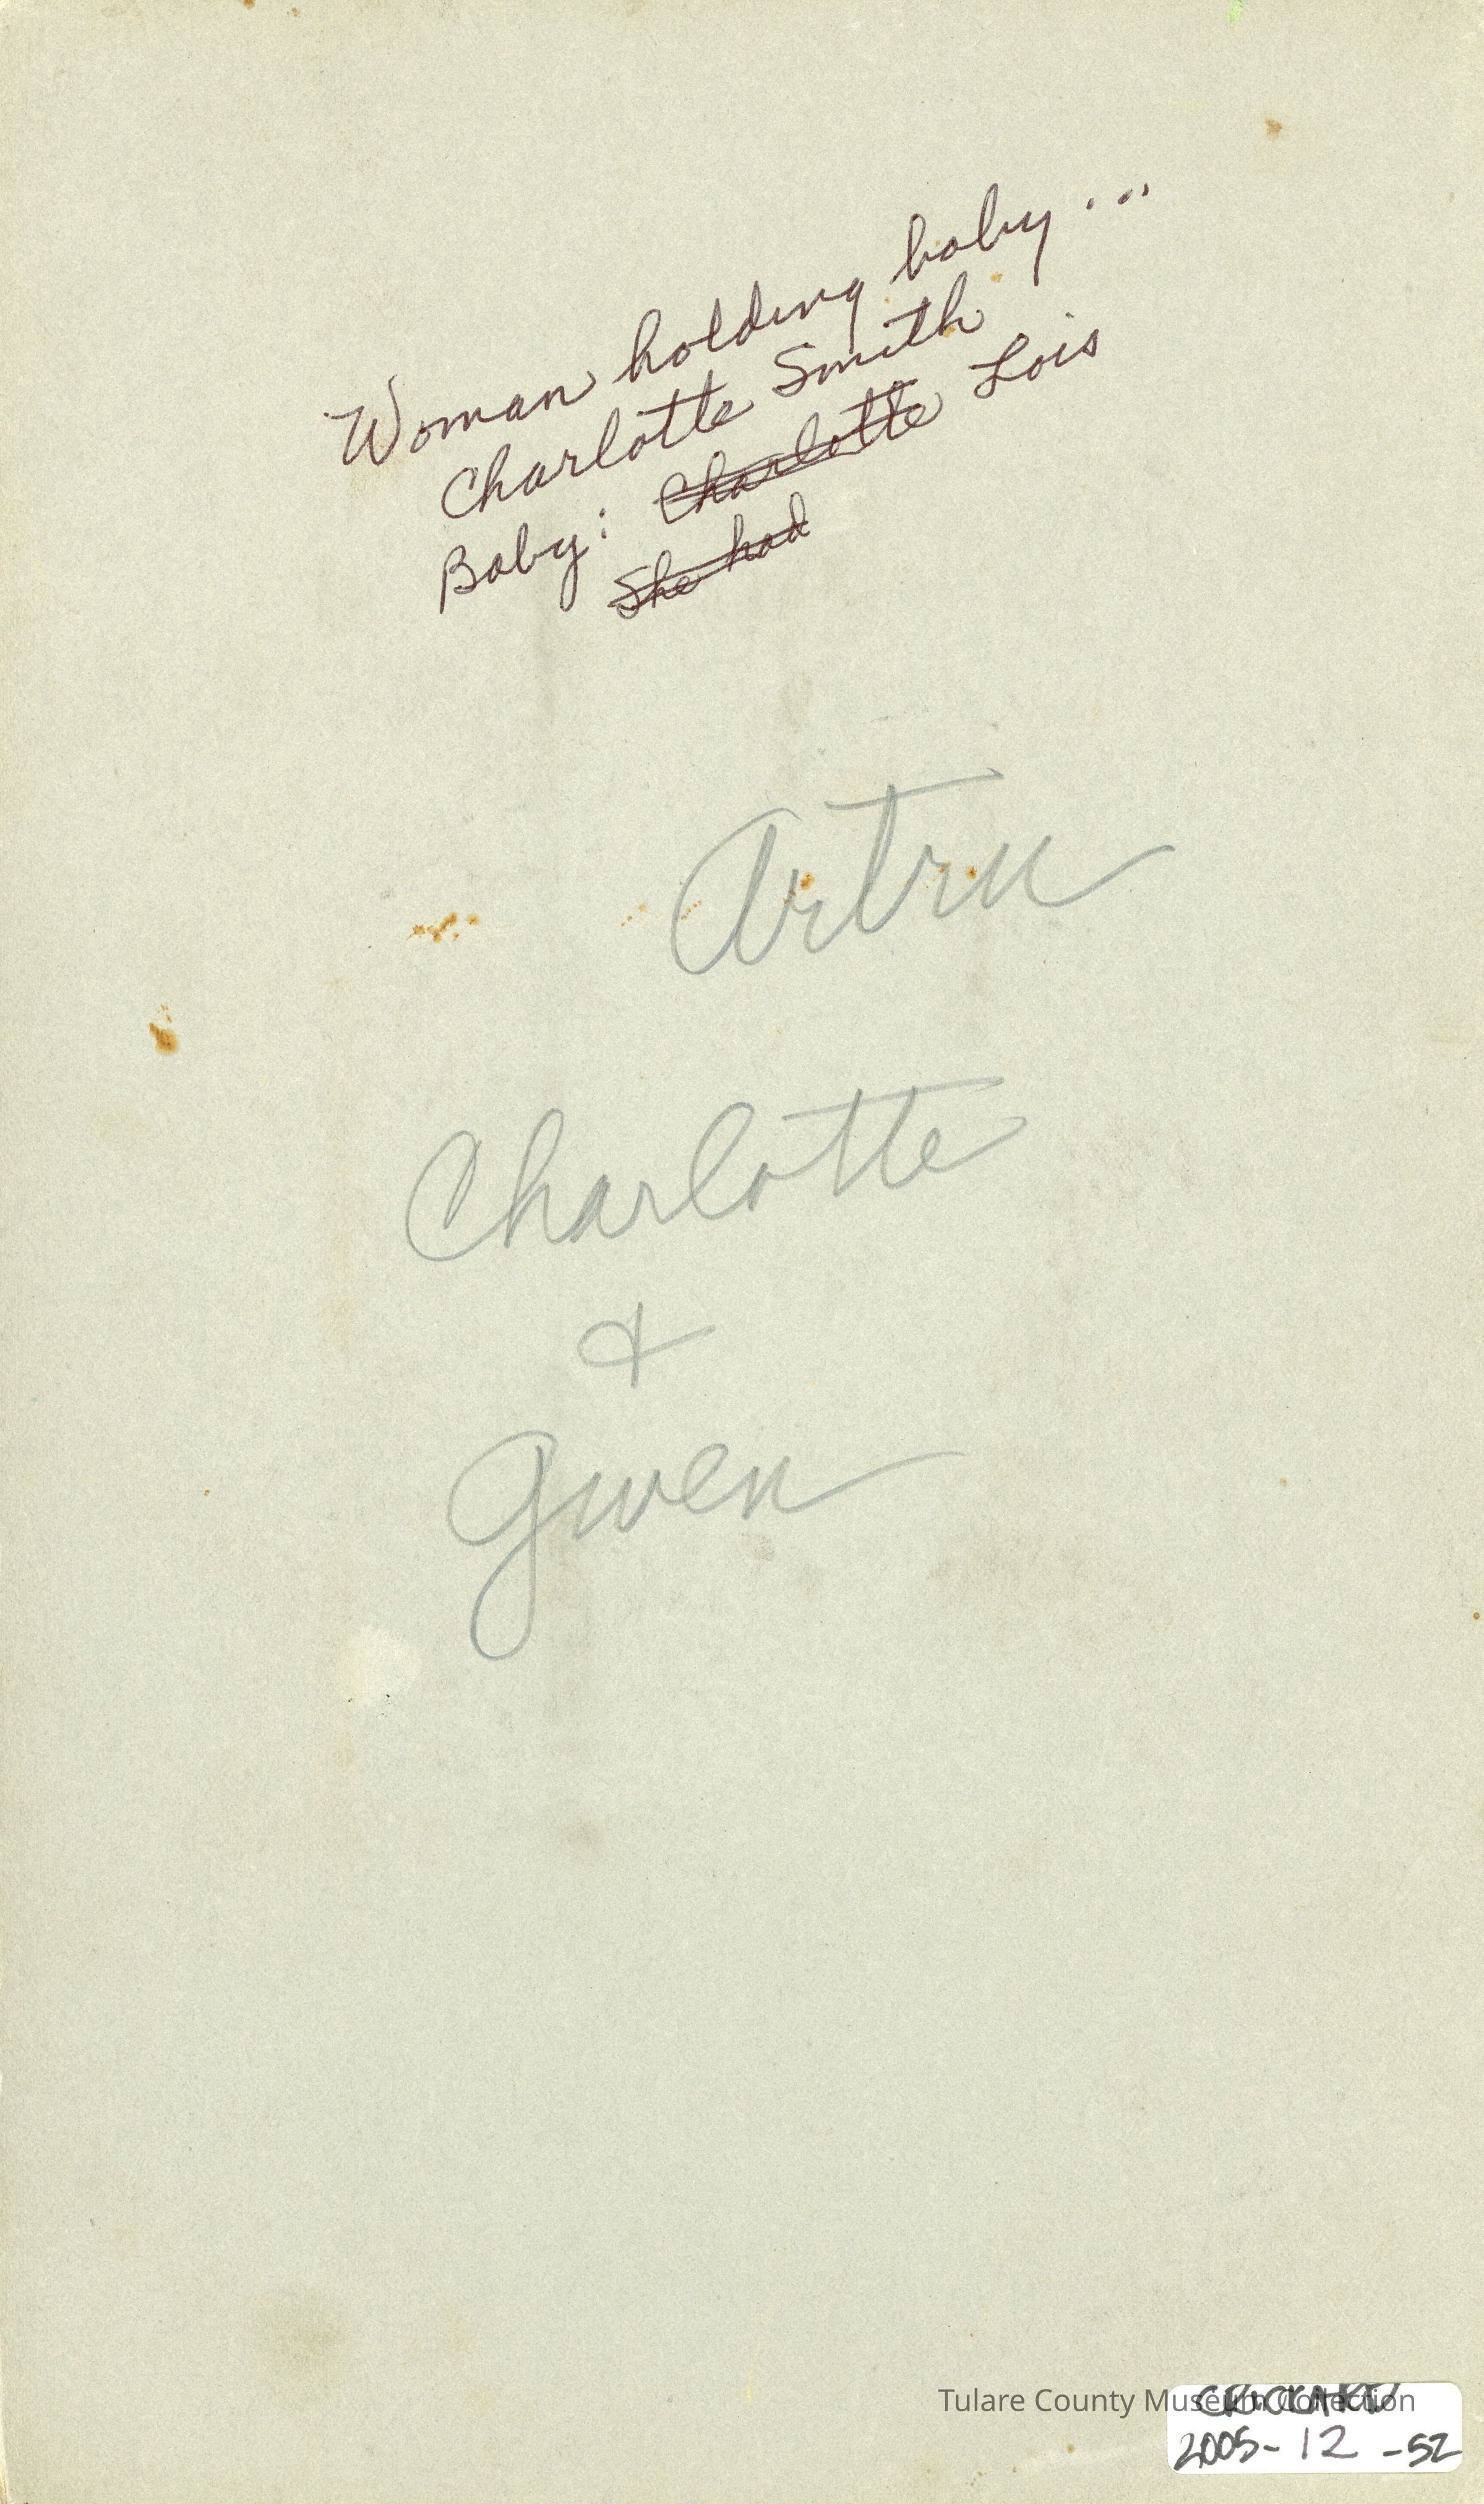 Woman holding baby...
Charlotte Smith
Baby: Charlotte Lois
She had
Artru
Charlotte
&
Gwen
Tulare County Museum Collection
2005-12-52